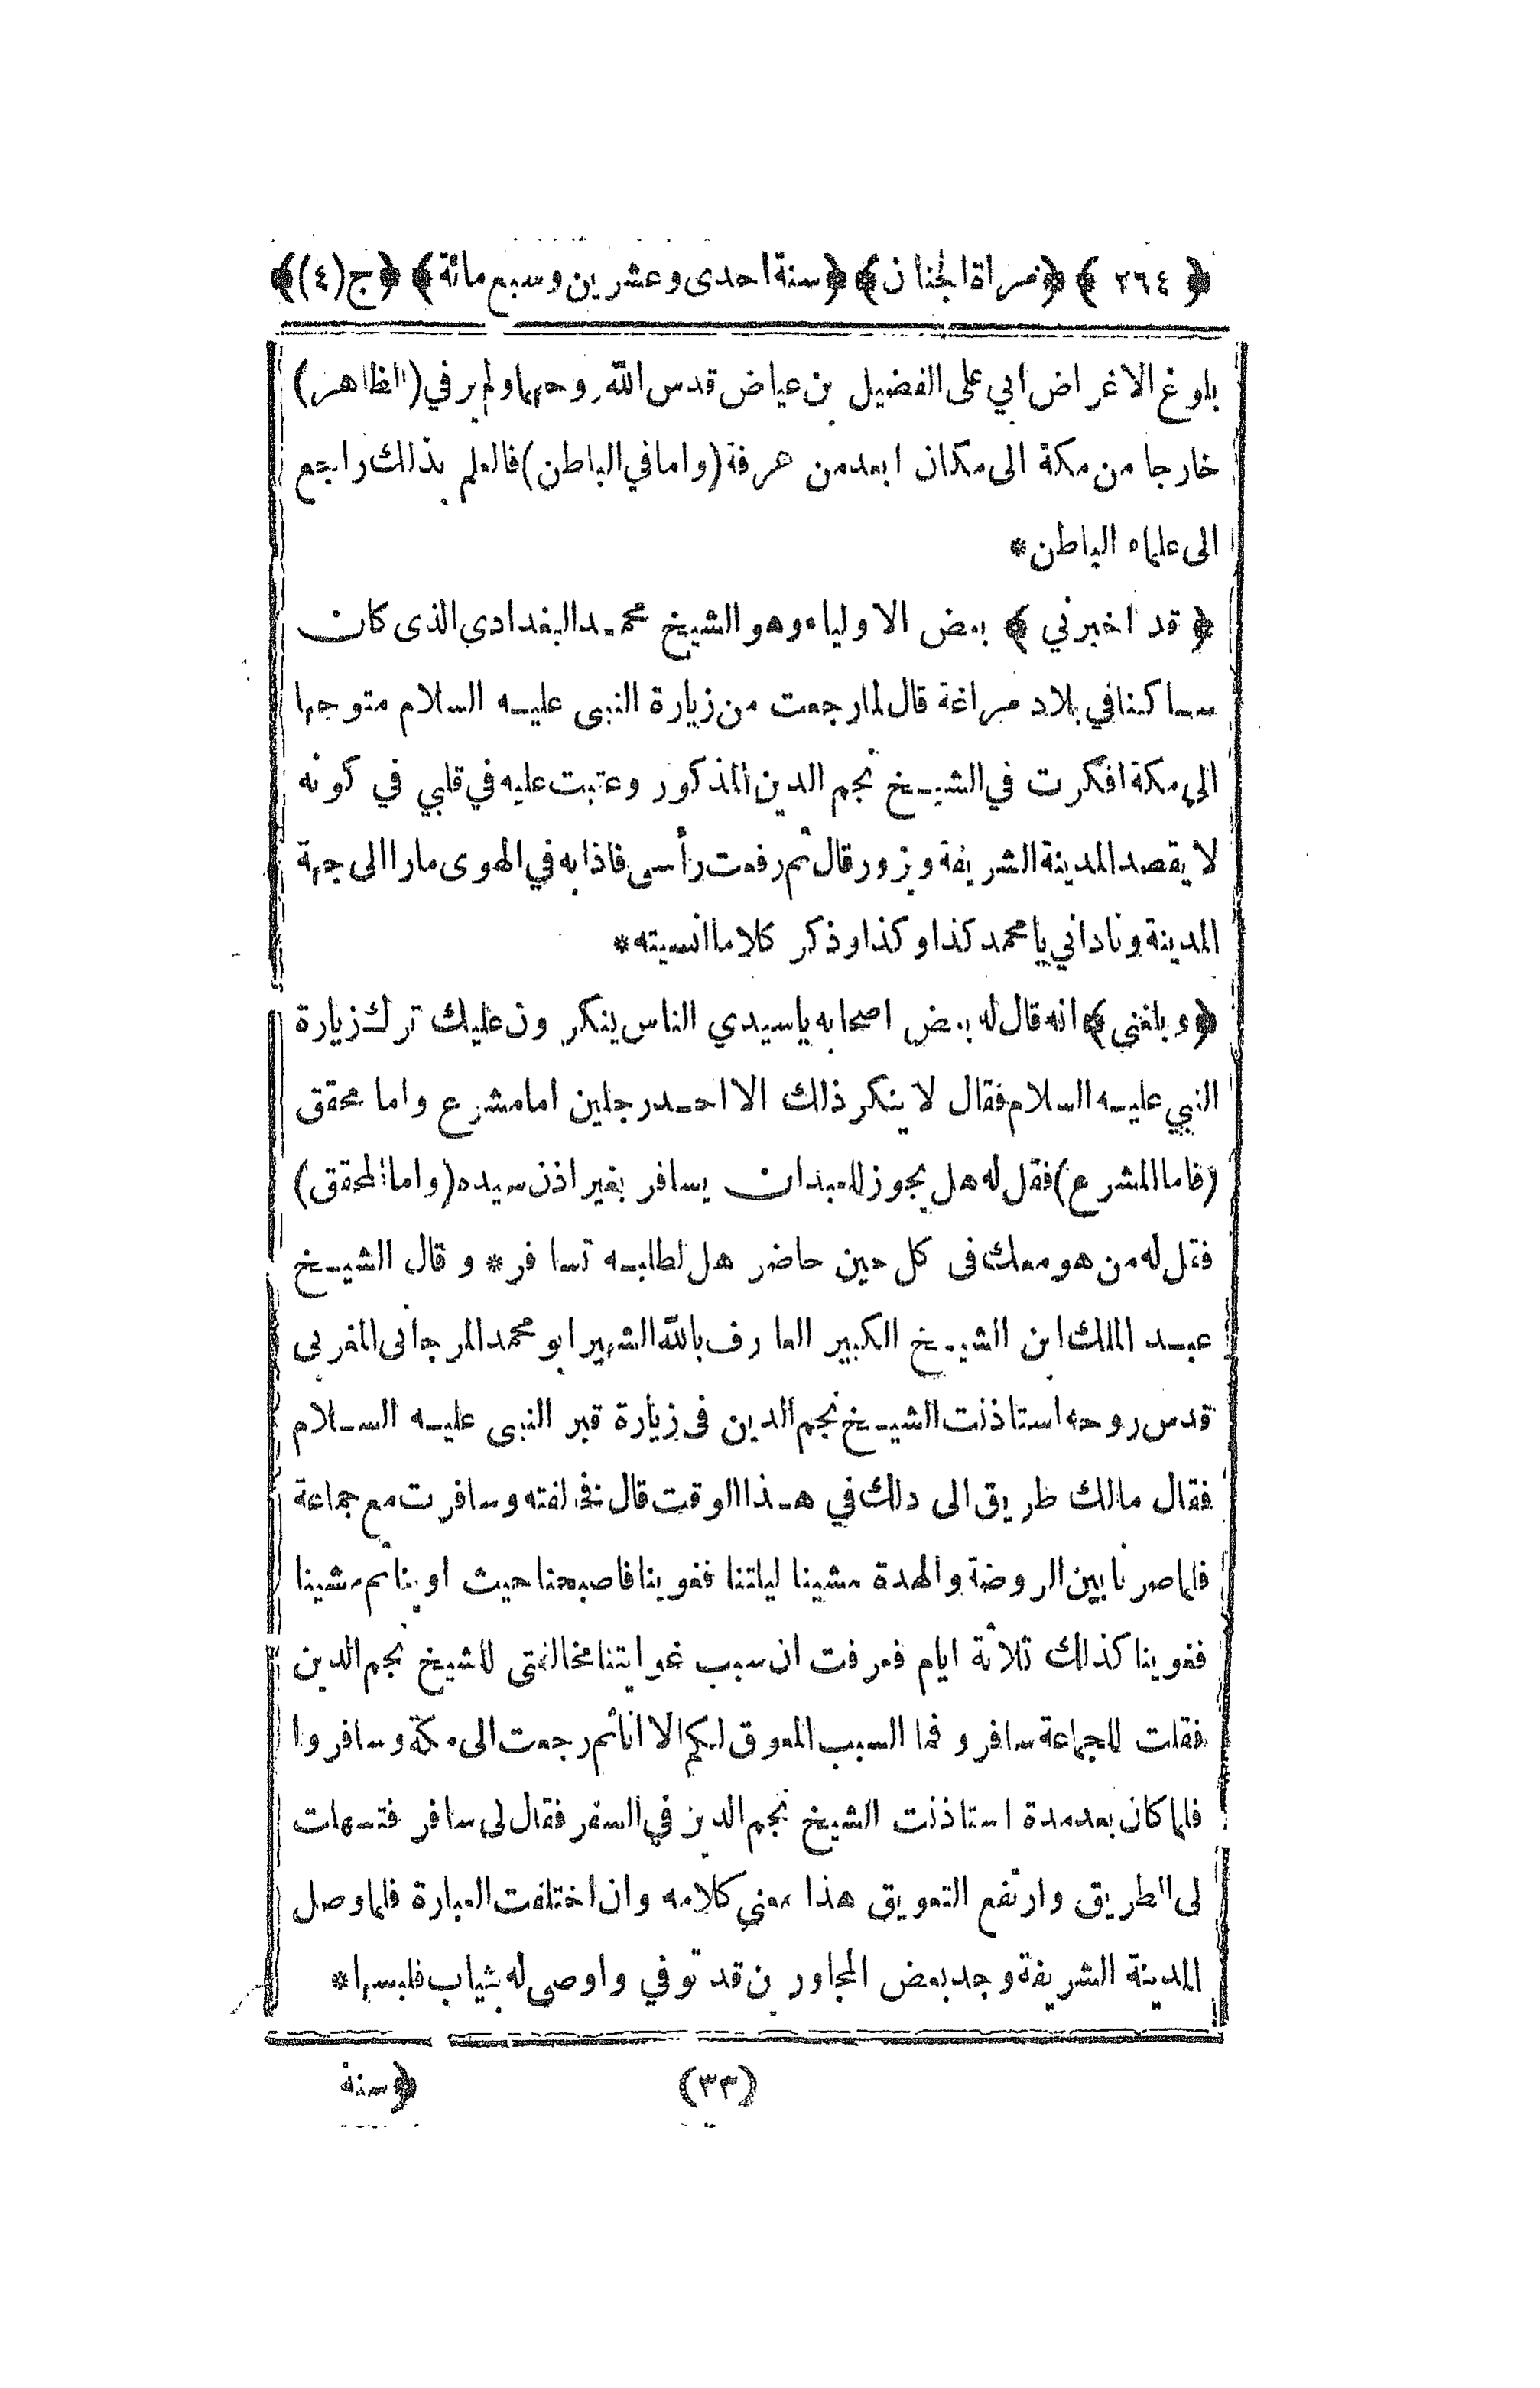 ﴿ ٢٦٤ ﴾ ﴿مراة الجنان﴾ ﴿سنة احدى وعشرين وسبع مائة﴾ ﴿ج (٤)﴾
بلوغ الاغراض ابي على الفضيل بن عياض قدس الله روحهما ولم ير في (الظاهر)
خارجا من مكة الى مكان ابعد من عرفة (واما في الباطن) فالعلم بذلك راجع
الى علماء الباطن*
﴿ قد اخبرني ﴾ بعض الاولياء وهو الشيخ محمد البغدادي الذى كان
ساكنا في بلاد مراغة قال لما رجعت من زيارة النبى عليه السلام متوجها
الى مكة افكرت في الشيخ نجم الدين المذكور وعتبت عليه في قلبي في كونه
لا يقصد المدينة الشريفة ويزور قال ثم رفعت رأسى فاذا به في الهوى مارا الى جهة
المدينة وناداني يا محمد كذا وكذا وذكر كلاما انسيته*
﴿وبلغني﴾ انه قال له بعض اصحابه يا سيدي الناس ينكرون عليك ترك زيارة
النبي عليه السلام فقال لا ينكر ذلك الا احد رجلين اما مشرع واما محقق
(فاما المشرع) فقل له هل يجوز للعبد ان يسافر بغير اذن سيده (واما المحقق)
فقل له من هو معك فى كل حين حاضر هل لطلبه تسافر* وقال الشيخ
عبد الملك ابن الشيخ الكبير العارف بالله الشهير ابو محمد المرجانى المغربى
قدس روحه استاذنت الشيخ نجم الدين فى زيارة قبر النبى عليه السلام
فقال مالك طريق الى ذلك في هذا الوقت قال فخالفته وسافرت مع جماعة
فلما صرنا بين الروضة والهدة مشينا ليلتنا فغوينا فاصبحنا حيث اوينا ثم مشينا
فغوينا كذلك ثلاثة ايام فعرفت ان سبب غوايتنا مخالفتى للشيخ نجم الدين
فقلت للجماعة سافروا فما السبب المعوق لكم الا انا ثم رجعت الى مكة وسافروا
فلما كان بعد مدة استاذنت الشيخ نجم الدين في السفر فقال لى سافر فتسهلت
لى الطريق وارتفع التعويق هذا معنى كلامه وان اختلفت العبارة فلما وصل
المدينة الشريفة وجد بعض المجاورين قد توفي واوصى له بثياب فلبسها*
(٣٣)
﴿سنة